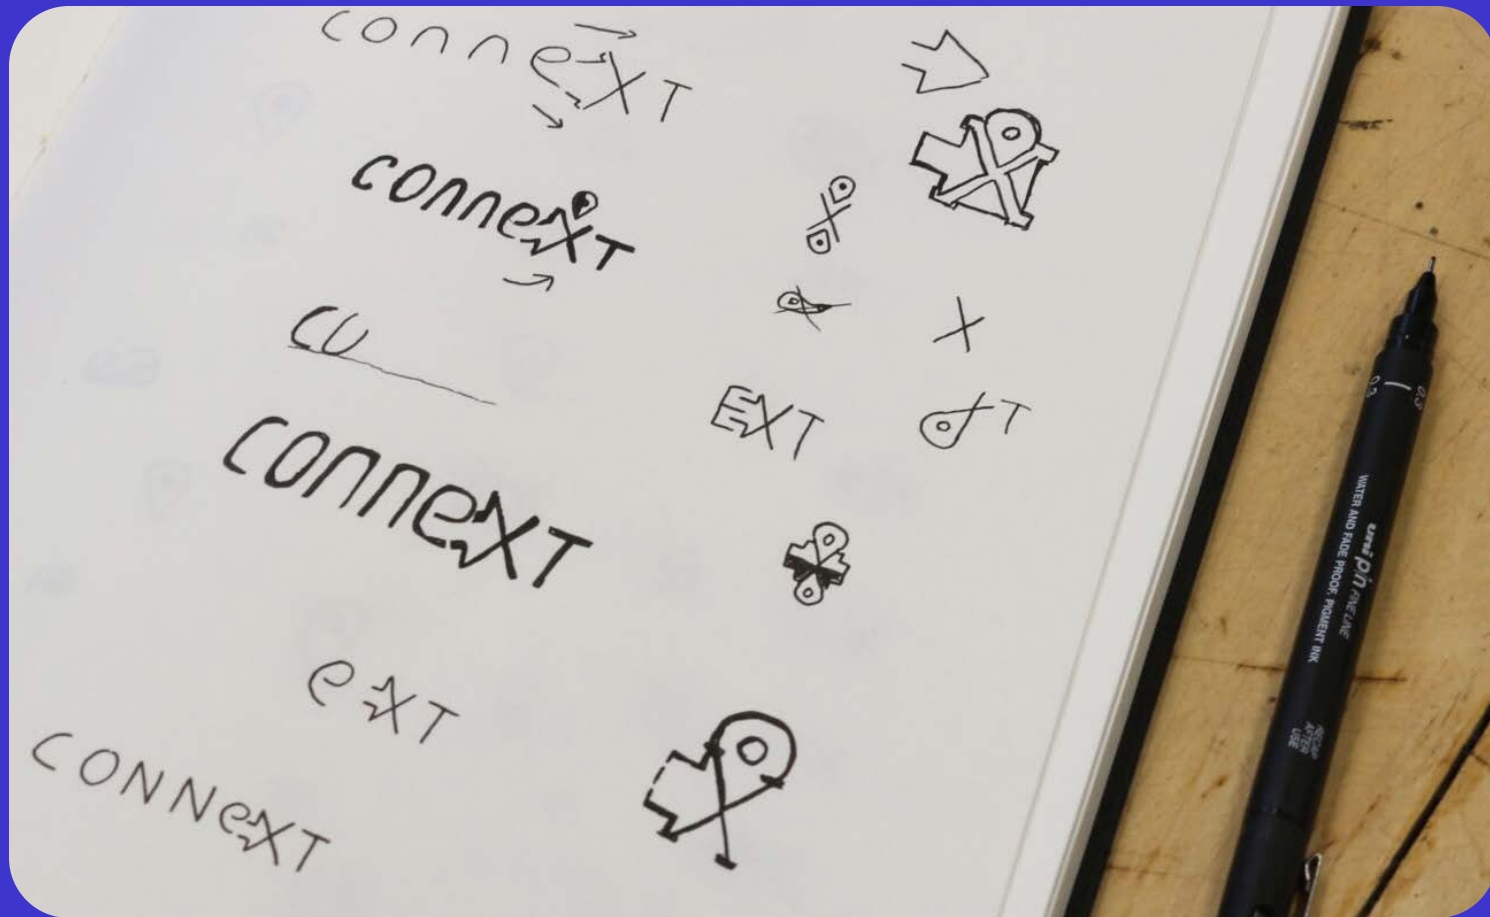 conneXT
conneXT
co
EXT
T
conneXT
eXT
CONNeXT
X
0.3
0.3
uni pin FINE LINE
WATER AND FADE PROOF, PIGMENT INK
RECAP
AFTER
USE